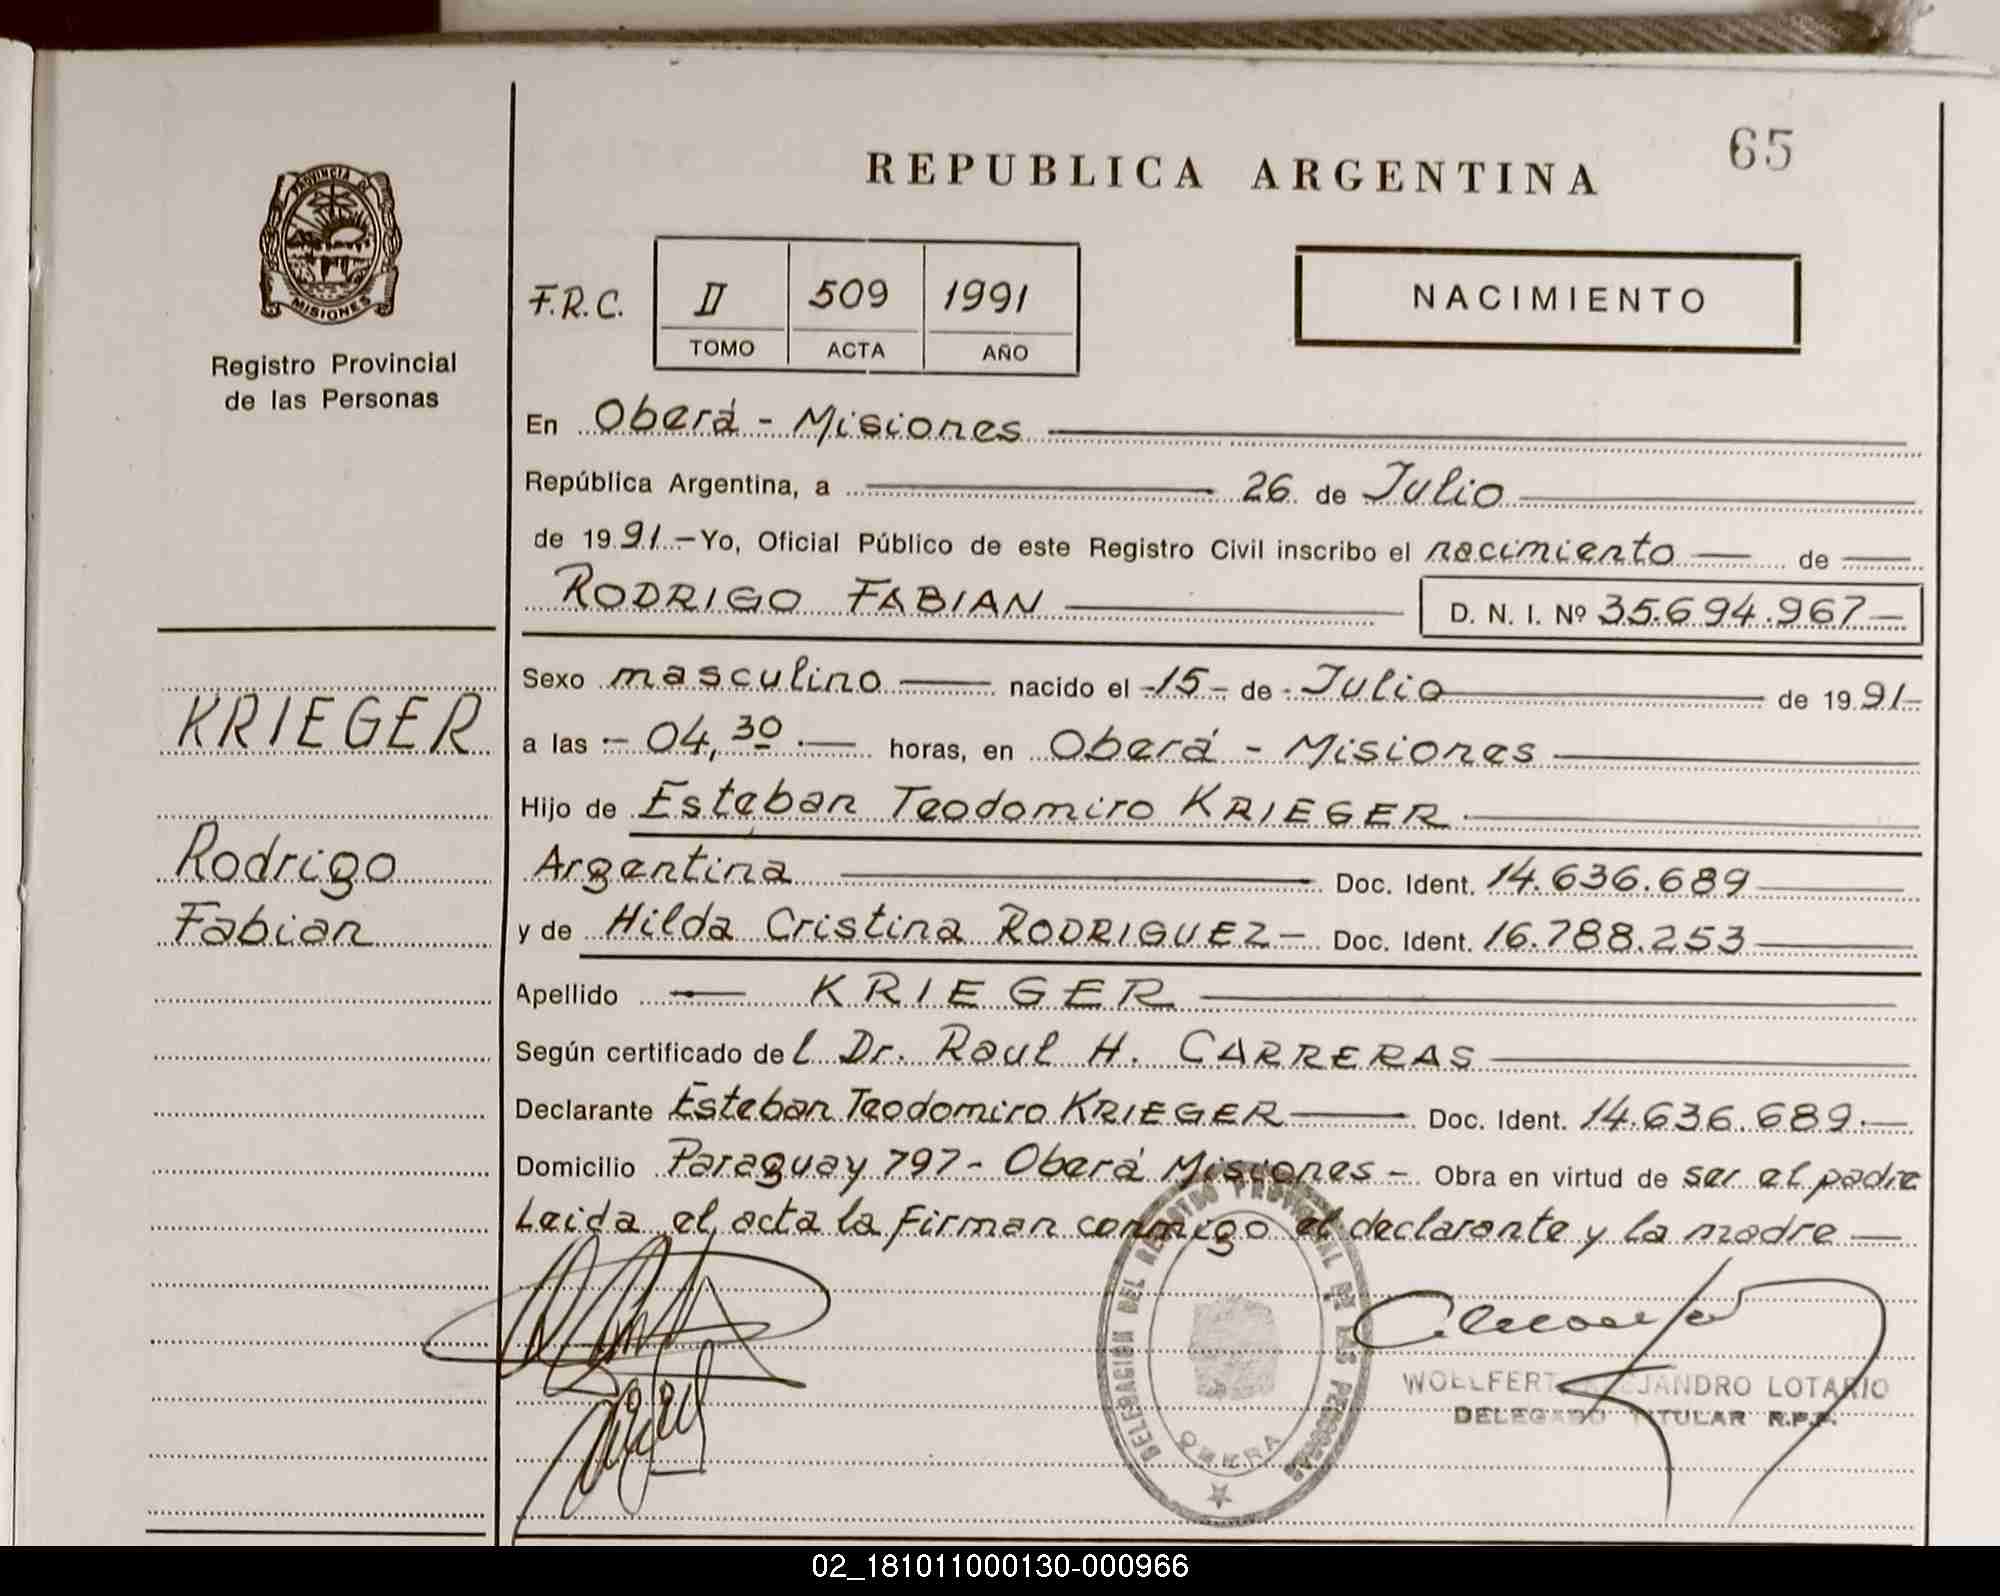 65
REPUBLICA ARGENTINA
PROVINCIA DE
MISIONES
Registro Provincial
de las Personas
F.R.C. II 509 1991
TOMO ACTA AÑO
NACIMIENTO
En Oberá - Misiones
República Argentina, a 26 de Julio
de 1991.- Yo, Oficial Público de este Registro Civil inscribo el nacimiento de
RODRIGO FABIAN D. N. I. Nº 35.694.967-
Sexo masculino nacido el -15- de - Julio de 1991-
KRIEGER
a las - 04,30.- horas, en Oberá - Misiones
Hijo de Esteban Teodomiro KRIEGER
Rodrigo
Argentina Doc. Ident. 14.636.689
Fabian
y de Hilda Cristina RODRIGUEZ- Doc. Ident. 16.788.253
Apellido - KRIEGER
Según certificado del Dr. Raul H. CARRERAS
Declarante Esteban Teodomiro KRIEGER Doc. Ident. 14.636.689.-
Domicilio Paraguay 797- Oberá Misiones - Obra en virtud de ser el padre
Leida el acta la firman conmigo el declarante y la madre
DELEGACIÓN DEL REGISTRO PROVINCIAL DE LAS PERSONAS
OBERA
WOLLFERT ALEJANDRO LOTARIO
DELEGADO TITULAR R.P.P.
02_181011000130-000966